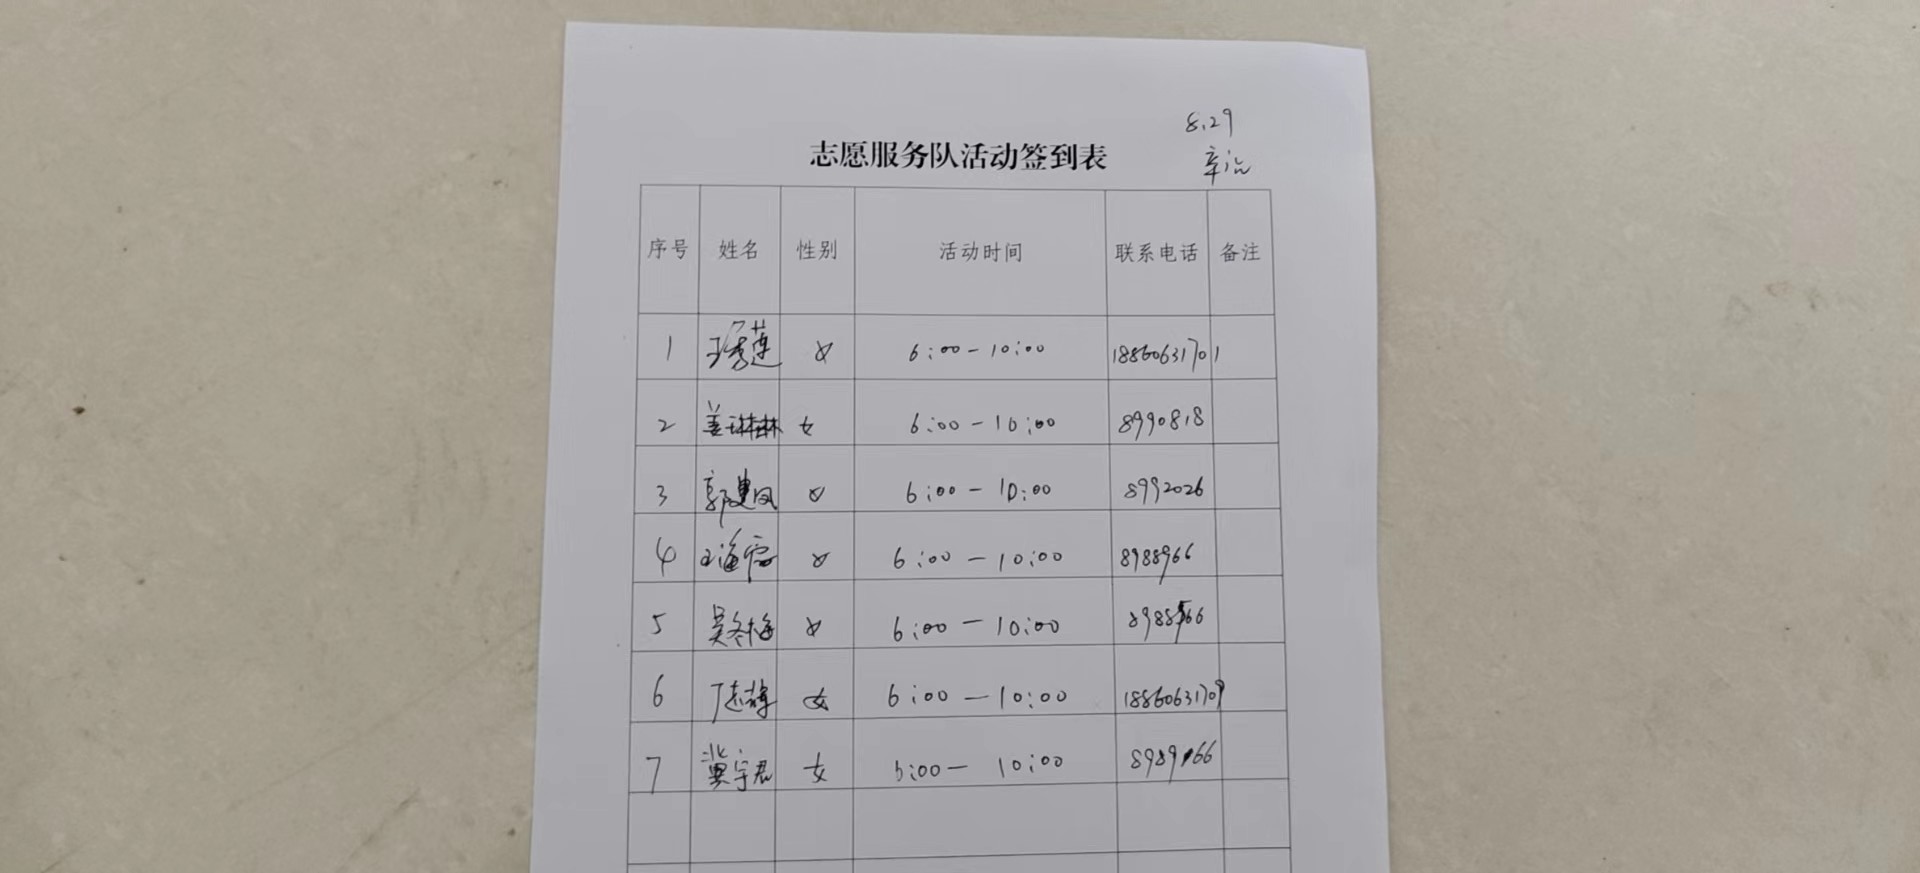 8.29
志愿服务队活动签到表
序号 姓名 性别 活动时间 联系电话 备注
1 王秀莲 女 6:00-10:00 18860631701
2 姜琳琳 女 6:00-10:00 8990818
3 郭建凤 女 6:00-10:00 8992026
4 王海霞 女 6:00-10:00 8988966
5 吴冬梅 女 6:00-10:00
6 女 6:00-10:00 18860631709
7 冀宇君 女 6:00-10:00